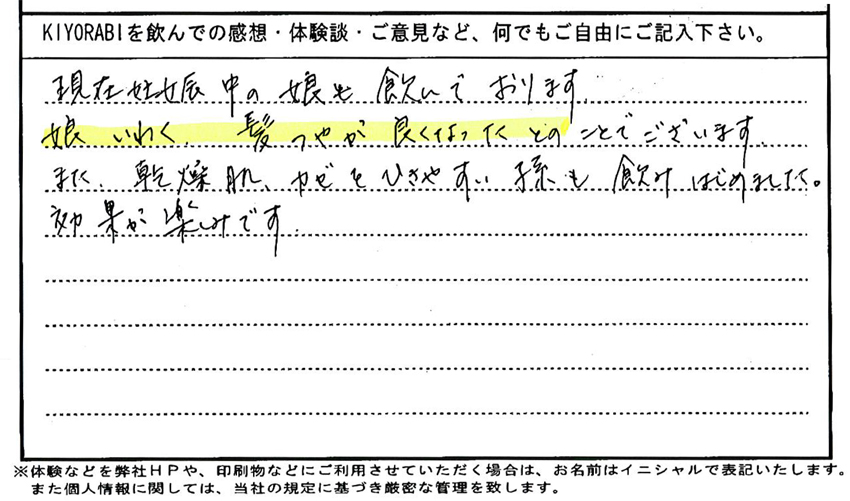 KIYORABIを飲んでの感想・体験談・ご意見など、何でもご自由にご記入下さい。
現在妊娠中の娘も飲んでおります。
娘いわく、髪つやが良くなったとのことでございます。
また、乾燥肌、カゼをひきやすい孫も飲みはじめました。
効果が楽しみです。
※体験などを弊社HPや、印刷物などにご利用させていただく場合は、お名前はイニシャルで表記いたします。
また個人情報に関しては、当社の規定に基づき厳密な管理を致します。